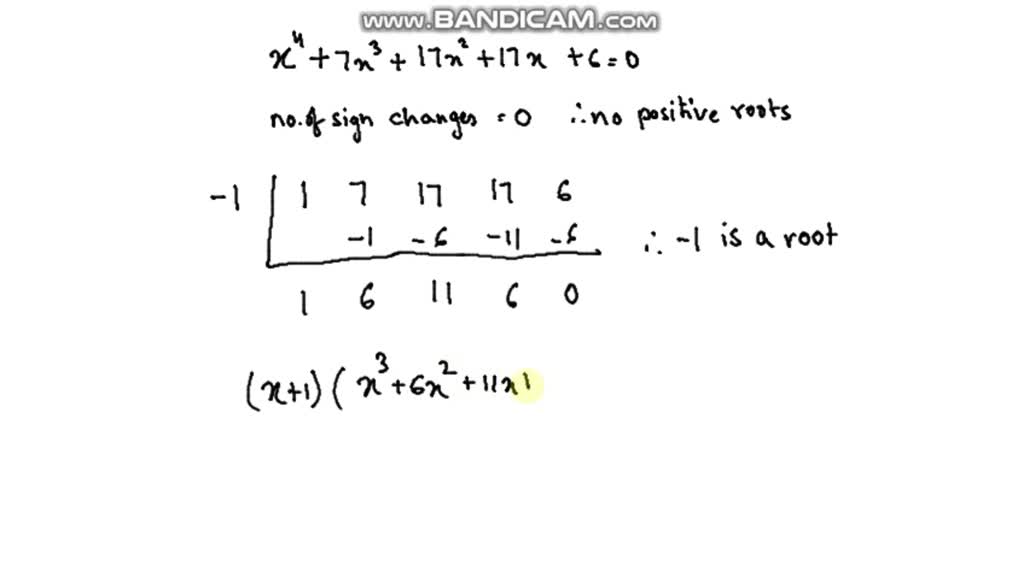 www.BANDICAM.com
x⁴ + 7x³ + 17x² + 17x + 6 = 0
no. of sign changes = 0 ∴ no positive roots
-1 | 1 7 17 17 6
-1 -6 -11 -6 ∴ -1 is a root
1 6 11 6 0
(x+1) ( x³ + 6x² + 11x